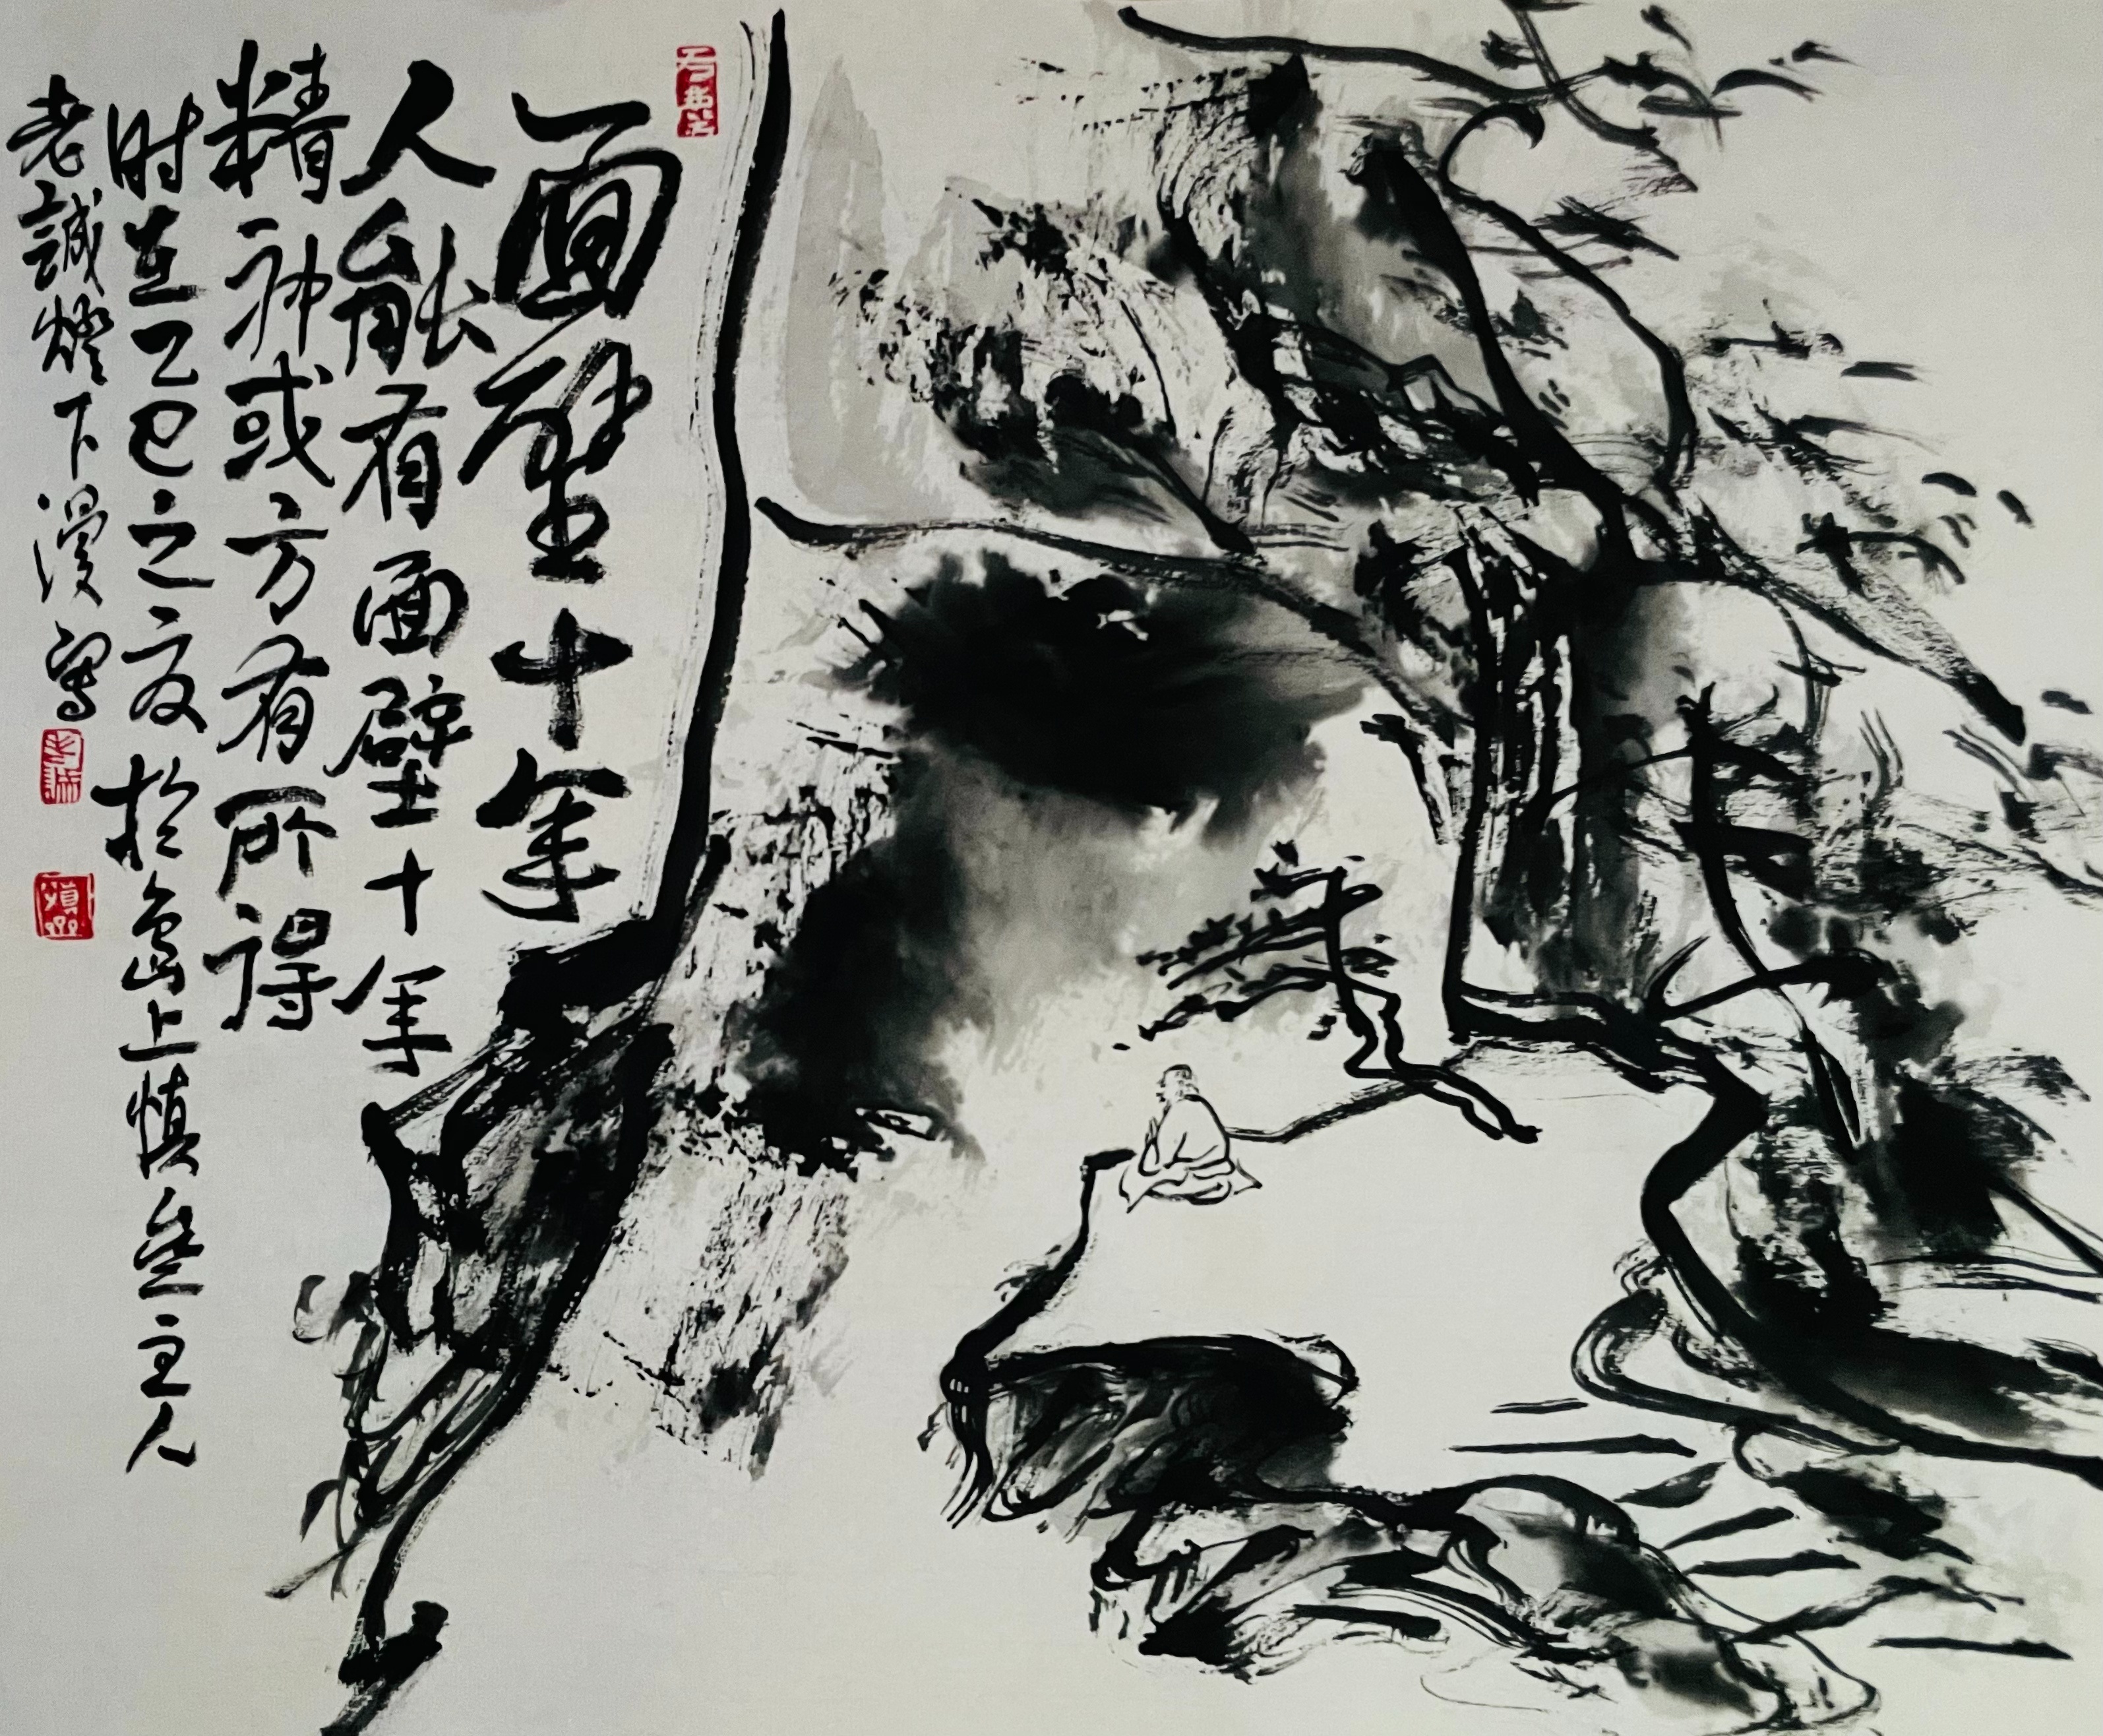 面壁十年
人能有面壁十年
精神或方有所得
时在乙巳之夏於岛上慎独斋主人
老誠燈下漫寫